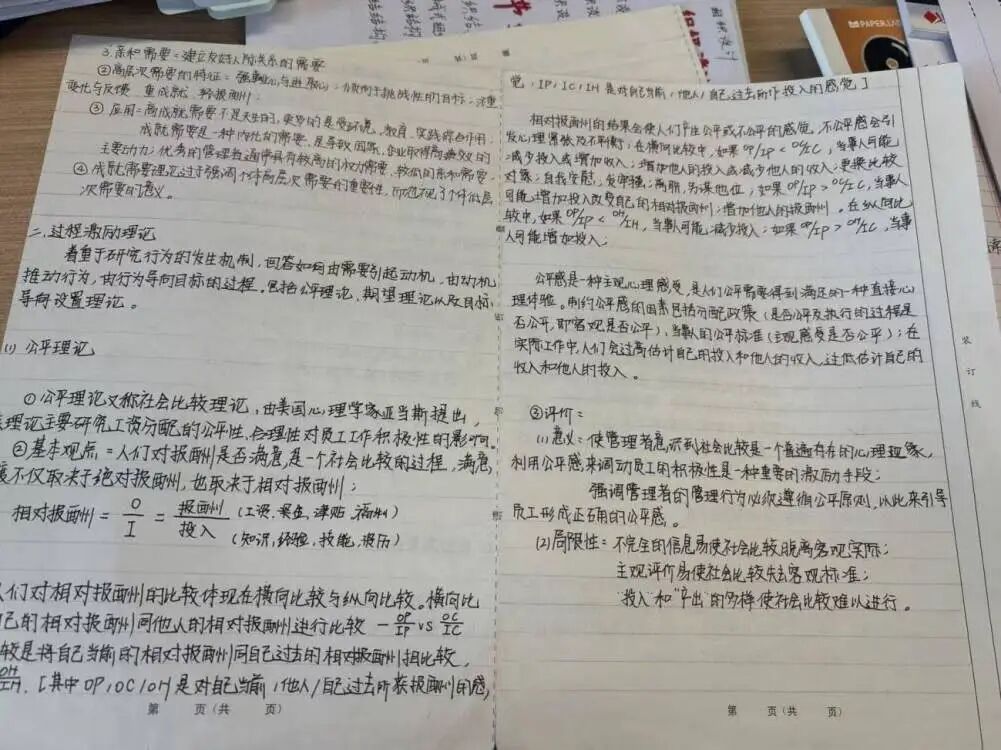 3.亲和需要=建立友好人际关系的需要
②高层次需要的特征=强事业心与进取心;倾向于挑战性的目标;注重
变化与反馈;重成就、轻报酬;
③应用=高成就需要不是天生的,更多的是受环境、教育、实践综合作用;
成就需要是一种内化的需要,是导致国家、企业取得高绩效的
主要动力;优秀的管理者通常具有较高的权力需要,较低的亲和需要。
④成就需要理论过于强调个体高层次需要的重要性,而忽视了个体低层
次需要的意义。
二、过程激励理论
着重于研究行为的发生机制,回答如何由需要引起动机,由动机
推动行为,由行为导向目标的过程。包括公平理论、期望理论以及目标
导向设置理论。
(1)公平理论
①公平理论又称社会比较理论,由美国心理学家亚当斯提出,
理论主要研究工资分配的公平性、合理性对员工工作积极性的影响。
②基本观点=人们对报酬是否满意是一个社会比较的过程,满意
不仅取决于绝对报酬,也取决于相对报酬;
相对报酬=O/I=报酬/投入(工资、奖金、津贴、福利)
(知识,经验,技能,资历)
人们对相对报酬的比较体现在横向比较与纵向比较。横向比
己的相对报酬同他人的相对报酬进行比较—OP/IP vs OC/IC
较是将自己当前的相对报酬同自己过去的相对报酬相比较,
OH/IH.[其中OP/OC/OH是对自己当前/他人/自己过去所获报酬的感,
第 页(共 页)
觉,IP/IC/IH是对自己当前/他人/自己过去所作投入的感觉]
相对报酬的结果会使人们产生公平或不公平的感觉,不公平感会引
发心理紧张及不平衡;在横向比较中,如果OP/IP<OC/IC,当事人可能
减少投入或增加收入;增加他人的投入或减少他人的收入;更换比较
对象;自我安慰,发牢骚;离职,另谋他位;如果OP/IP>OC/IC,当事人
可能增加投入改变自己的相对报酬;增加他人的报酬。在纵向比
较中,如果OP/IP<OH/IH,当事人可能减少投入;如果OP/IP>OH/IC,当事
人可能增加投入;
公平感是一种主观心理感受,是人们公平需要得到满足的一种直接心
理体验。制约公平感的因素包括分配政策(是否公平及执行的过程是
否公开,即客观是否公平),当事人的公平标准(主观感受是否公平);在
实际工作中,人们会过高估计自己的投入和他人的收入,过低估计自己的
收入和他人的投入。
③评价=
(1)意义:使管理者意识到社会比较是一个普遍存在的心理现象,
利用公平感来调动员工的积极性是一种重要的激励手段;
强调管理者的管理行为必须遵循公平原则,以此来引导
员工形成正确的公平感。
(2)局限性:不完全的信息易使社会比较脱离客观实际;
主观评价易使社会比较失去客观标准;
"投入"和"产出"的多样使社会比较难以进行。
第 页(共 页)
装
订
线
PAPERLAB